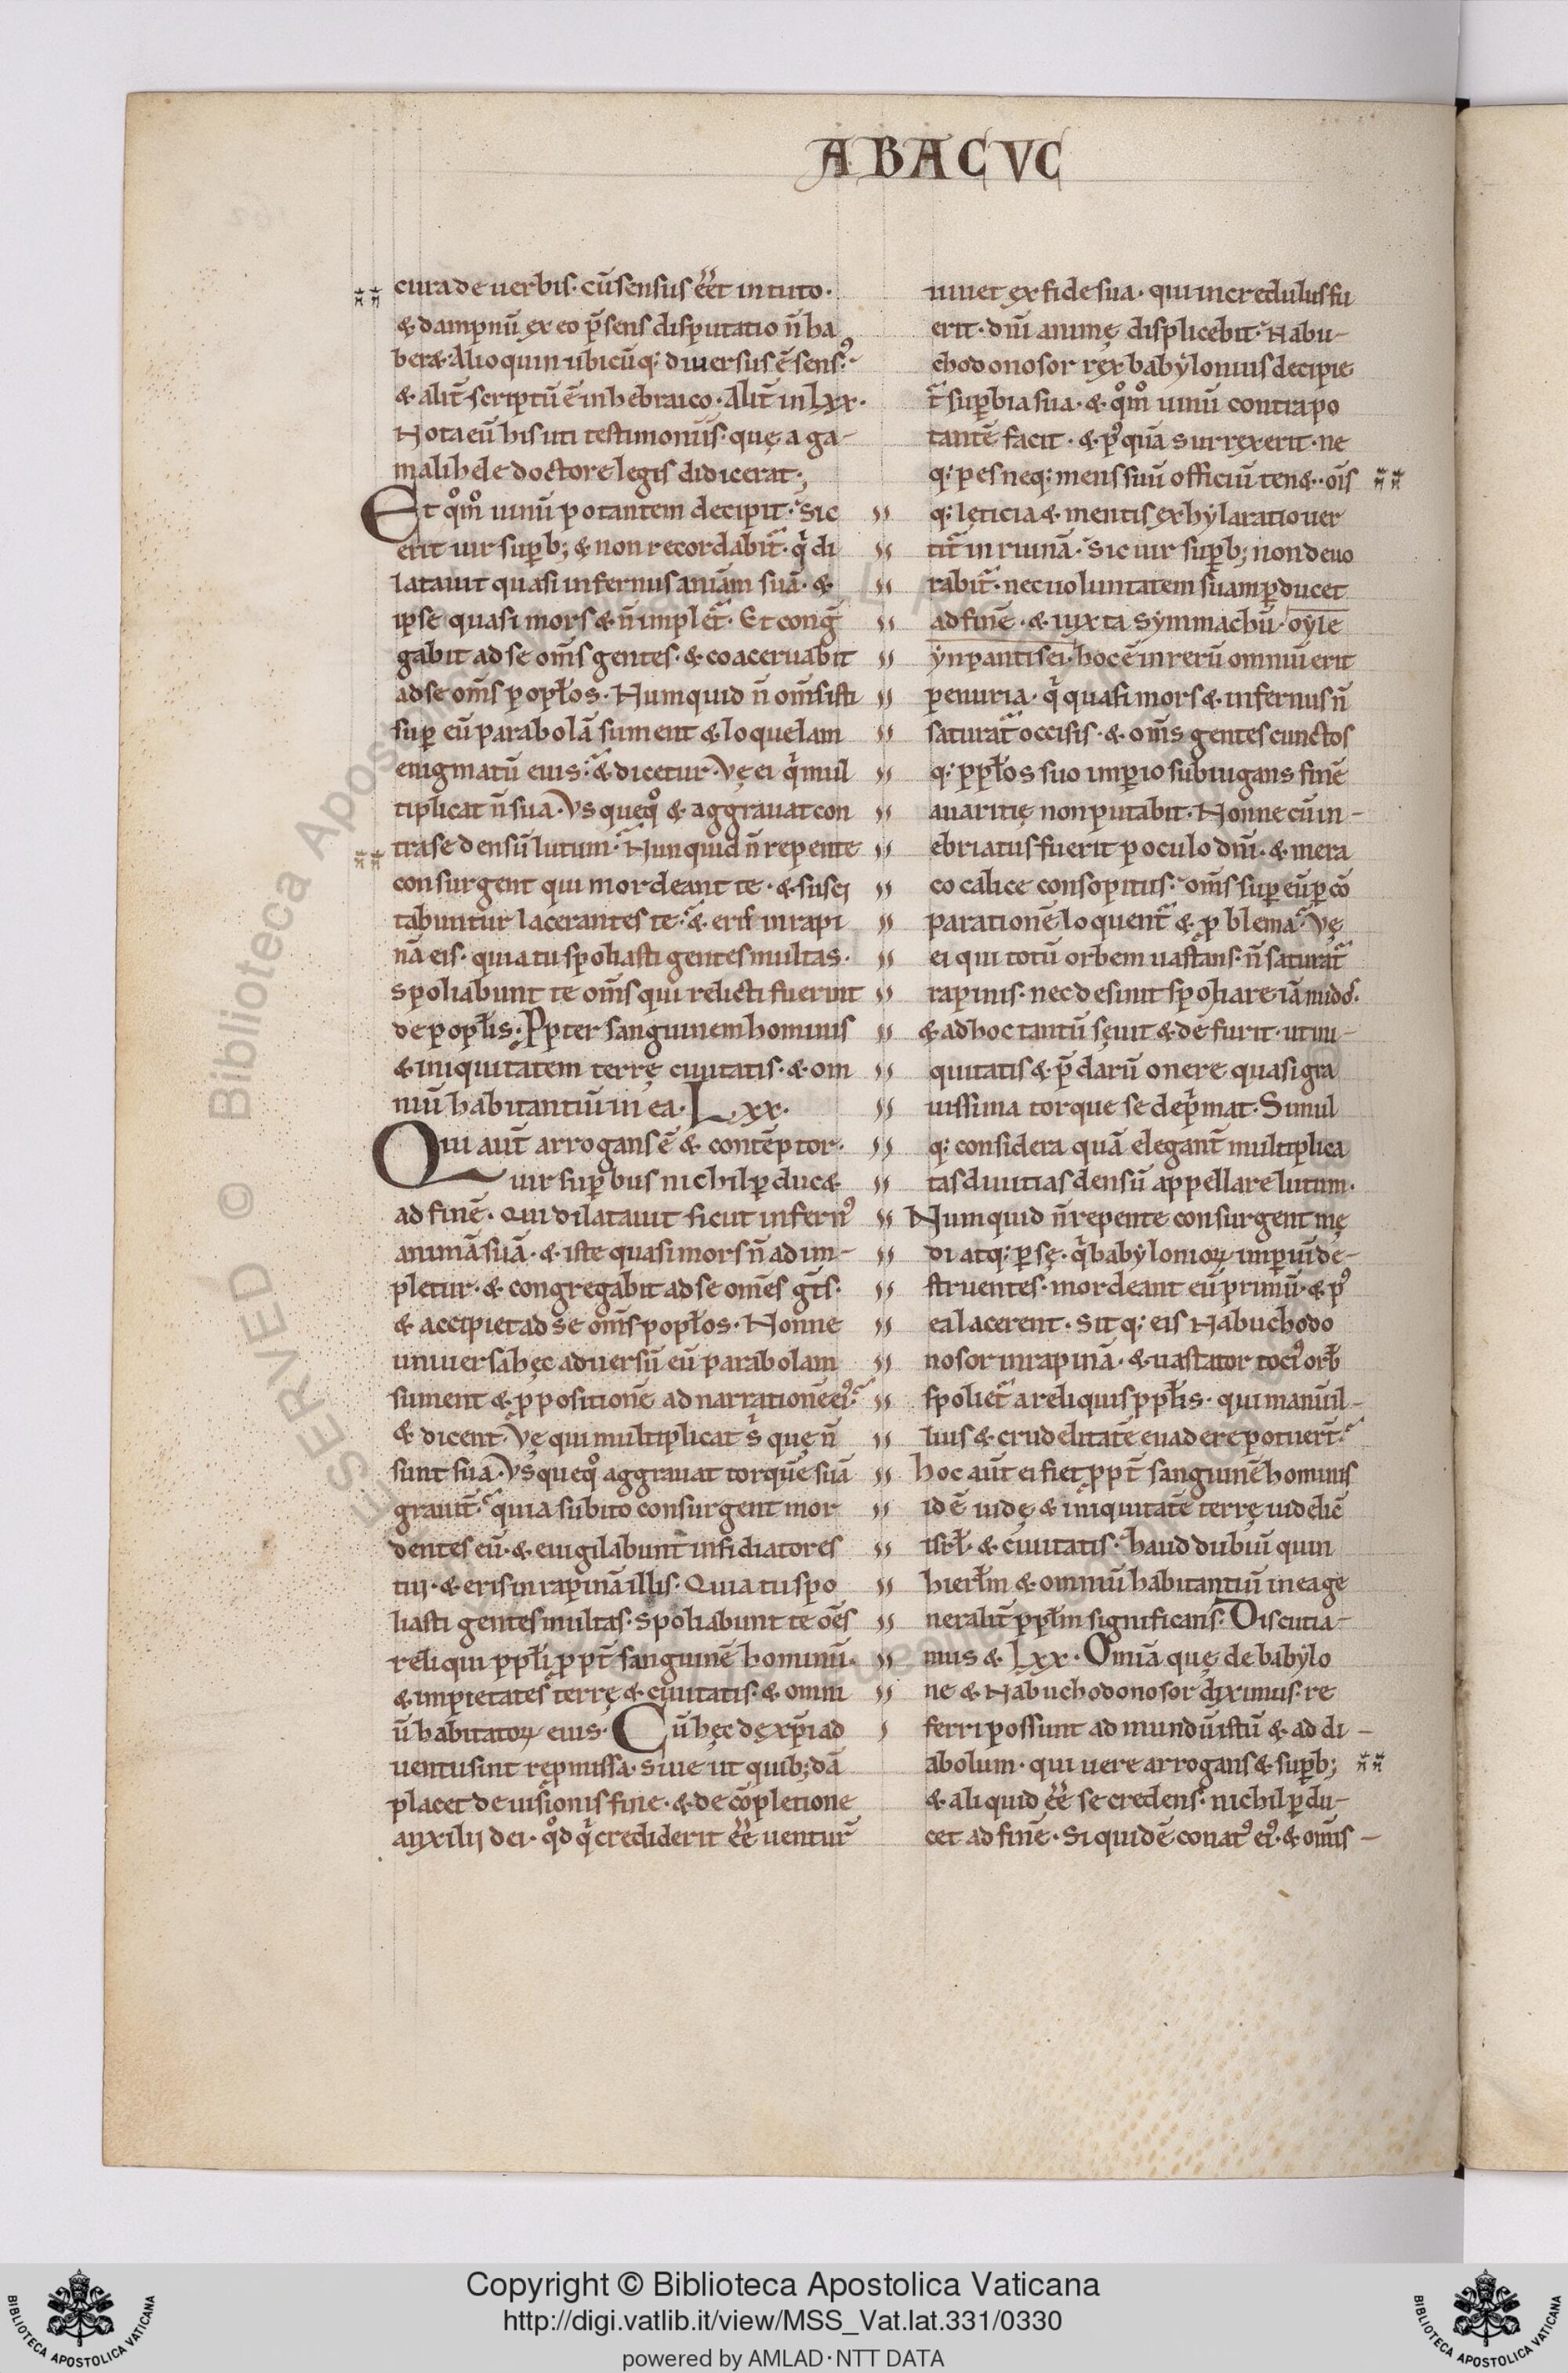 ABACVC
cura de uerbis· cū sensus ēēt in tuto·
& dampnū ex eo p̄sens disputatio n̄ ha
ber&· Alioquin ubicūq; diuersus ē sens᾿·
& alit̄ scriptū ē in hebraico· Alit̄ in Lxx·
Nota eū his uti testimoniis· quę a ga-
malihele doctore legis didicerat·
Et qͦm̊ uinū potantem decipit· Sic
erit uir sup̄b; & non recordabit̄· qͥ di
latauit quasi infernus aniam̄ suā· &
ipse quasi mors & n̄ implet̄· Et conḡ
gabit ad se om̄s gentes· & coaceruabit
ad se om̄s popl̄os· Numquid n̄ om̄s isti
sup̄ eū parabolā sument & loquelam
enigmatū eius· & dicetur· Vę ei qͥ mul
tiplicat n̄ sua· Vsquequͦ & aggrauat con
tra se densū lutum· Nunquid n̄ repente
consurgent qui mordeant te· & susci
tabuntur lacerantes te· & eris in rapi
nā eis· quia tu spoliasti gentes multas·
spoliabunt te om̄s qui relicti fuerint
de popl̄is· Pp̄ter sanguinem hominis
& iniquitatem terrę ciuitatis· & om
niū habitantiū in ea· Lxx·
Qui aut̄ arrogans ē & contēptor·
uir sup̄bus nichil p̄duc&
ad finē· Qui dilatauit sicut infern᾿
animā suā· & iste quasi mors n̄ ad im-
pletur· & congregabit ad se omēs gt̄s·
& accipiet ad se om̄s popl̄os· Nonne
uniuersa hęc aduersū eū parabolam
sument & p̄positionē ad narrationē ei᾿·
& dicent· Vę qui multiplicat sͥ quę n̄
sunt sua· Vsquequͦ aggrauat torquē suā
grauit̄· quia subito consurgent mor
dentes eū· & euigilabunt insidiatores
tui· & eris in rapinā illis· Quia tu spo
liasti gentes multas· spoliabunt te oēs
reliqui ppl̄i pp̄t̄ sanguinē hominū·
& impietates terrę & ciuitatis· & omni
ū habitatoꝝ eius· Cū hęc de xp̄i ad
uentu sint repmissa· siue ut quib;dā
placet de uisionis fine· & de cōpletione
auxilij dei· qͦd qͥ crediderit ēē uentur̄
uiuet ex fide sua· qui incredulus fu
erit· dn̄i animę displicebit· Nabu-
chodonosor rex babylonius decipie
t̄ sup̄bia sua· & qͦm̊ uinū contra po
tantē facit· & p᾿quā surrexerit· ne
q; pes neq; mens suū officiū ten&·· ois̄
q; lęticia & mentis exhylaratio uer
tit̄ in ruinā· Sic uir sup̄b; non deuo
rabit̄· nec uoluntatem suam p̄ducet
ad finē· & iuxta Symmachū· oyie
ynpantisei· hoc ē in rerū omniū erit
penuria· qͥ quasi mors & infernus n̄
saturat̄ occisis· & om̄s gentes cunctos
q; ppl̄os suo imp̄io subiugans finē
auaritię non putabit· Nonne cū in-
ebriatus fuerit poculo dn̄i· & mera
co calice consopitus· om̄s sup̄ eū p̄ cō
parationē loquent̄ & p̄blema· Vę
ei qui totū orbem uastans· n̄ saturat̄
rapinis· nec desinit spoliare iā nudos·
& ad hoc tantū sęuit & de furit· ut ini-
quitatis & p̄darū onere quasi gra
uissima torque se dep̄mat· Simul
q; considera quā elegant̄ multiplica
tas diuitias densū appellare lutum·
Numquid n̄ repente consurgent mę
di atq; p̄sę· qͥ babylonioꝝ imp̄iū de-
struentes· mordeant eū primū· & p᾿
ea lacerent· Sitq; eis Nabuchodo
nosor in rapinā· & uastator toci᾿ orb̄
spoliet̄ a reliquis ppl̄is· qui manū il-
lius & crudelitatē euadere potuer̄t·
hoc aut̄ ei fiet pp̄t̄ sanguinē hominis
id ē iudę & iniquitatē terrę uidelic̄
isrl̄· & ciuitatis· haud dubiū quin
hierl̄m & omniū habitantiū in ea ge
neralit̄ ppl̄m significans· Discutia-
mus & Lxx· Omīa quę de babylo
ne & Nabuchodonosor diximus· re
ferri possunt ad mundū istū & ad di-
abolum· qui uere arrogans & sup̄b;
& aliquid ēē se credens· nichil p̄du-
cet ad finē· Siquidē conat᾿ ei᾿· & om̄is-
Copyright © Biblioteca Apostolica Vaticana
http://digi.vatlib.it/view/MSS_Vat.lat.331/0330
powered by AMLAD·NTT DATA
BIBLIOTECA APOSTOLICA VATICANA
BIBLIOTECA APOSTOLICA VATICANA